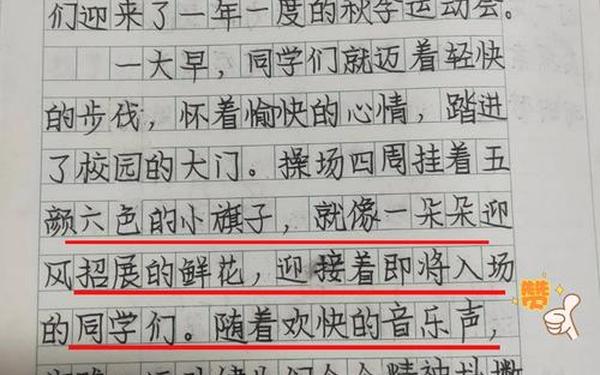 们迎来了一年一度的秋季运动会。
一大早，同学们就迈着轻快
的步伐，怀着愉快的心情，踏进
了校园的大门。操场四周挂着五
颜六色的小旗子，就像一朵朵迎
风招展的鲜花，迎接着即将入场
的同学们。随着欢快的音乐声，
个个精神抖擞
赞